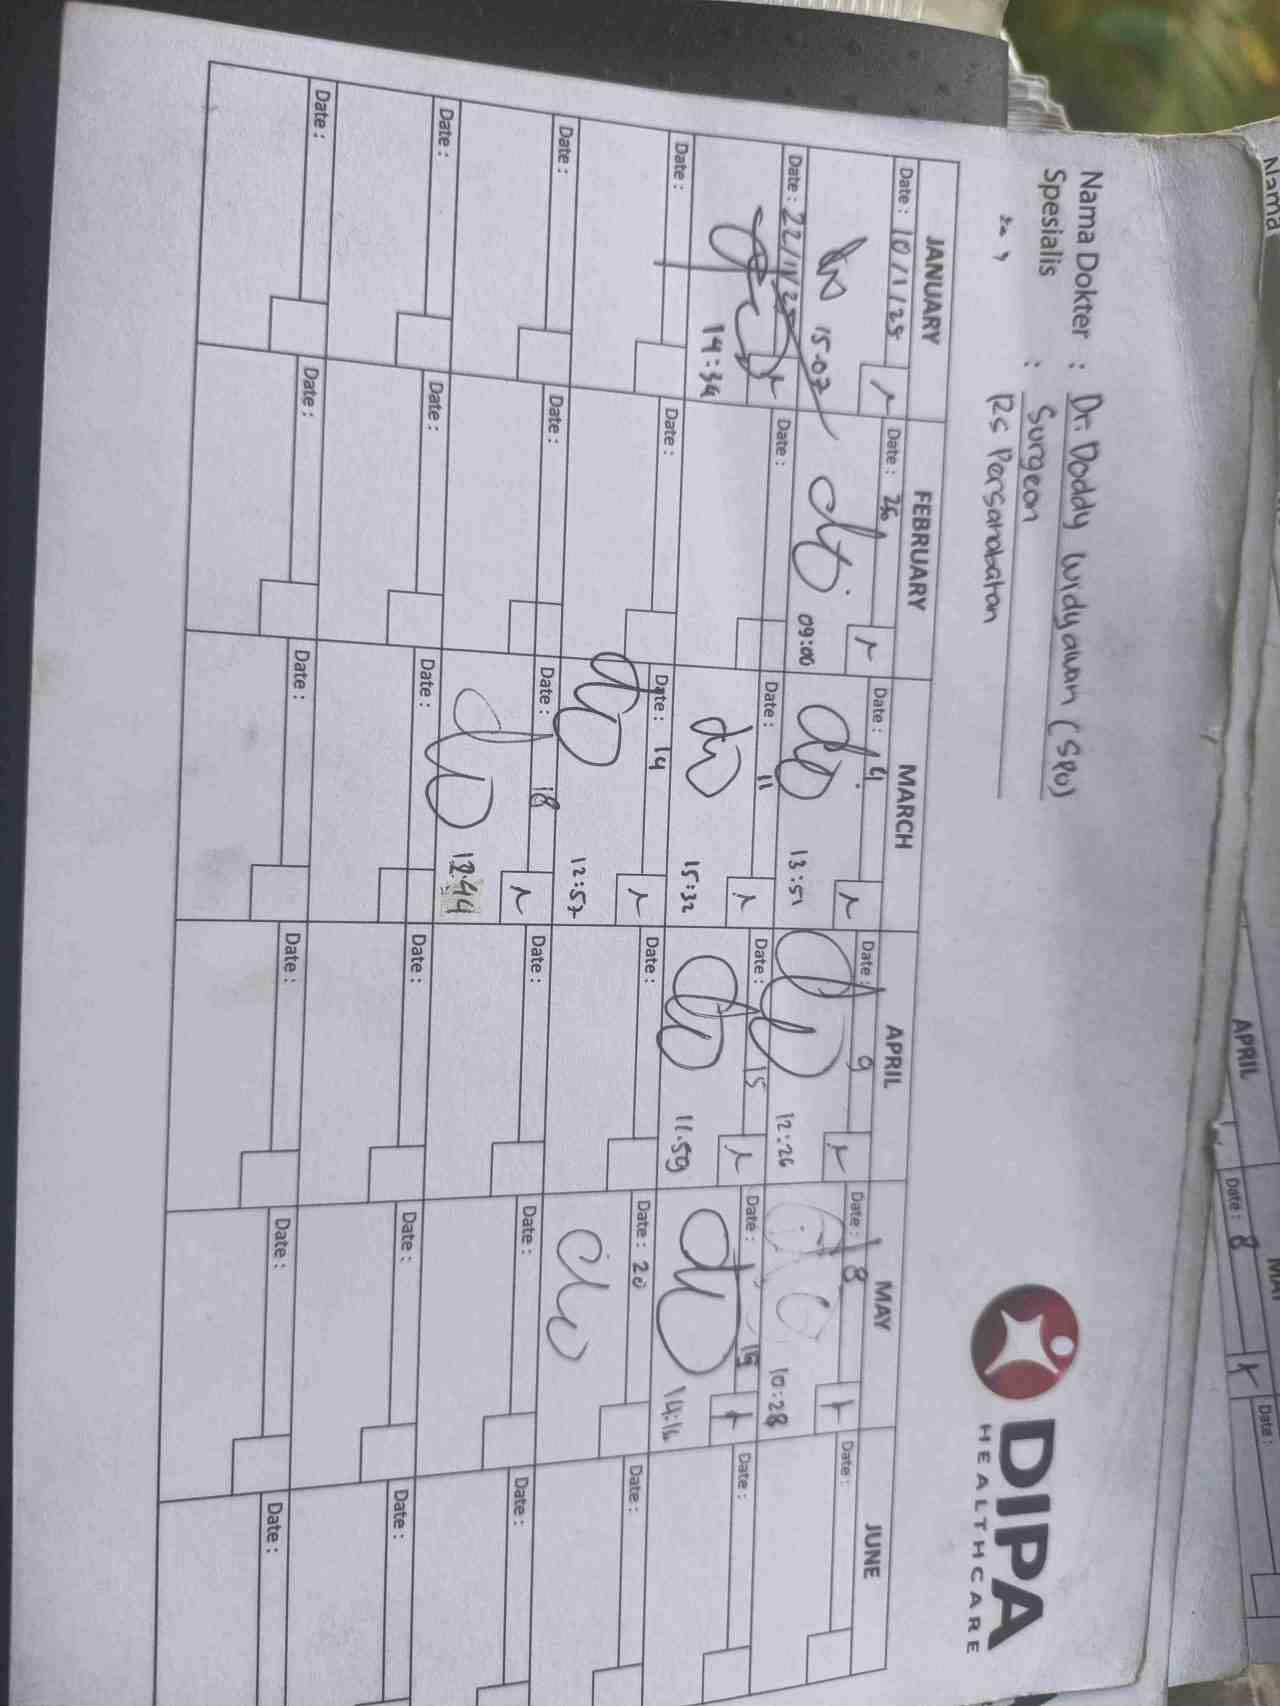 Nama Dokter : Dr. Doddy Widyawan (SPU)
Spesialis : Surgeon
RS Persahabatan
DIPA
HEALTHCARE
JANUARY FEBRUARY MARCH APRIL MAY JUNE
Date : 10/1/25 Date : 26 Date : 4 Date : 9 Date : 8 Date :
15.07 09:00 13:51 12:26 10:28
Date : 22/1/25 Date : Date : 11 Date : 15 Date : 15 Date :
14:34 15:32 11.59 14:16
Date : Date : Date : 14 Date : Date : 20 Date :
12:57
Date : Date : Date : 18 Date : Date : Date :
12.44
Date : Date : Date : Date : Date : Date :
Date : Date : Date : Date : Date : Date :
Nama
APRIL
MAY
Date : 8
Date :